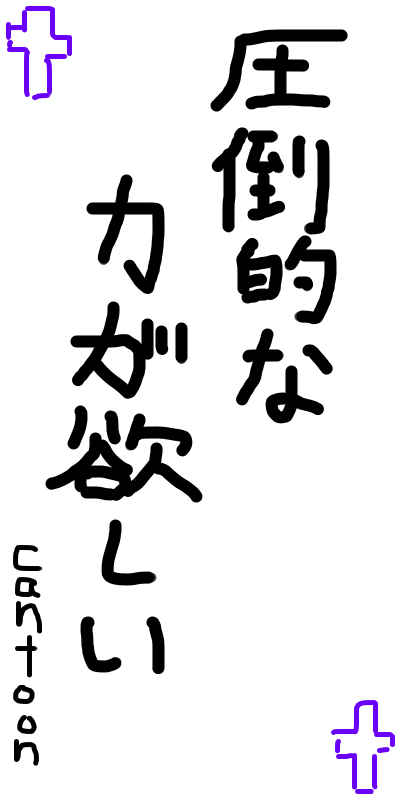 圧倒的な
力が欲しい
cantoon